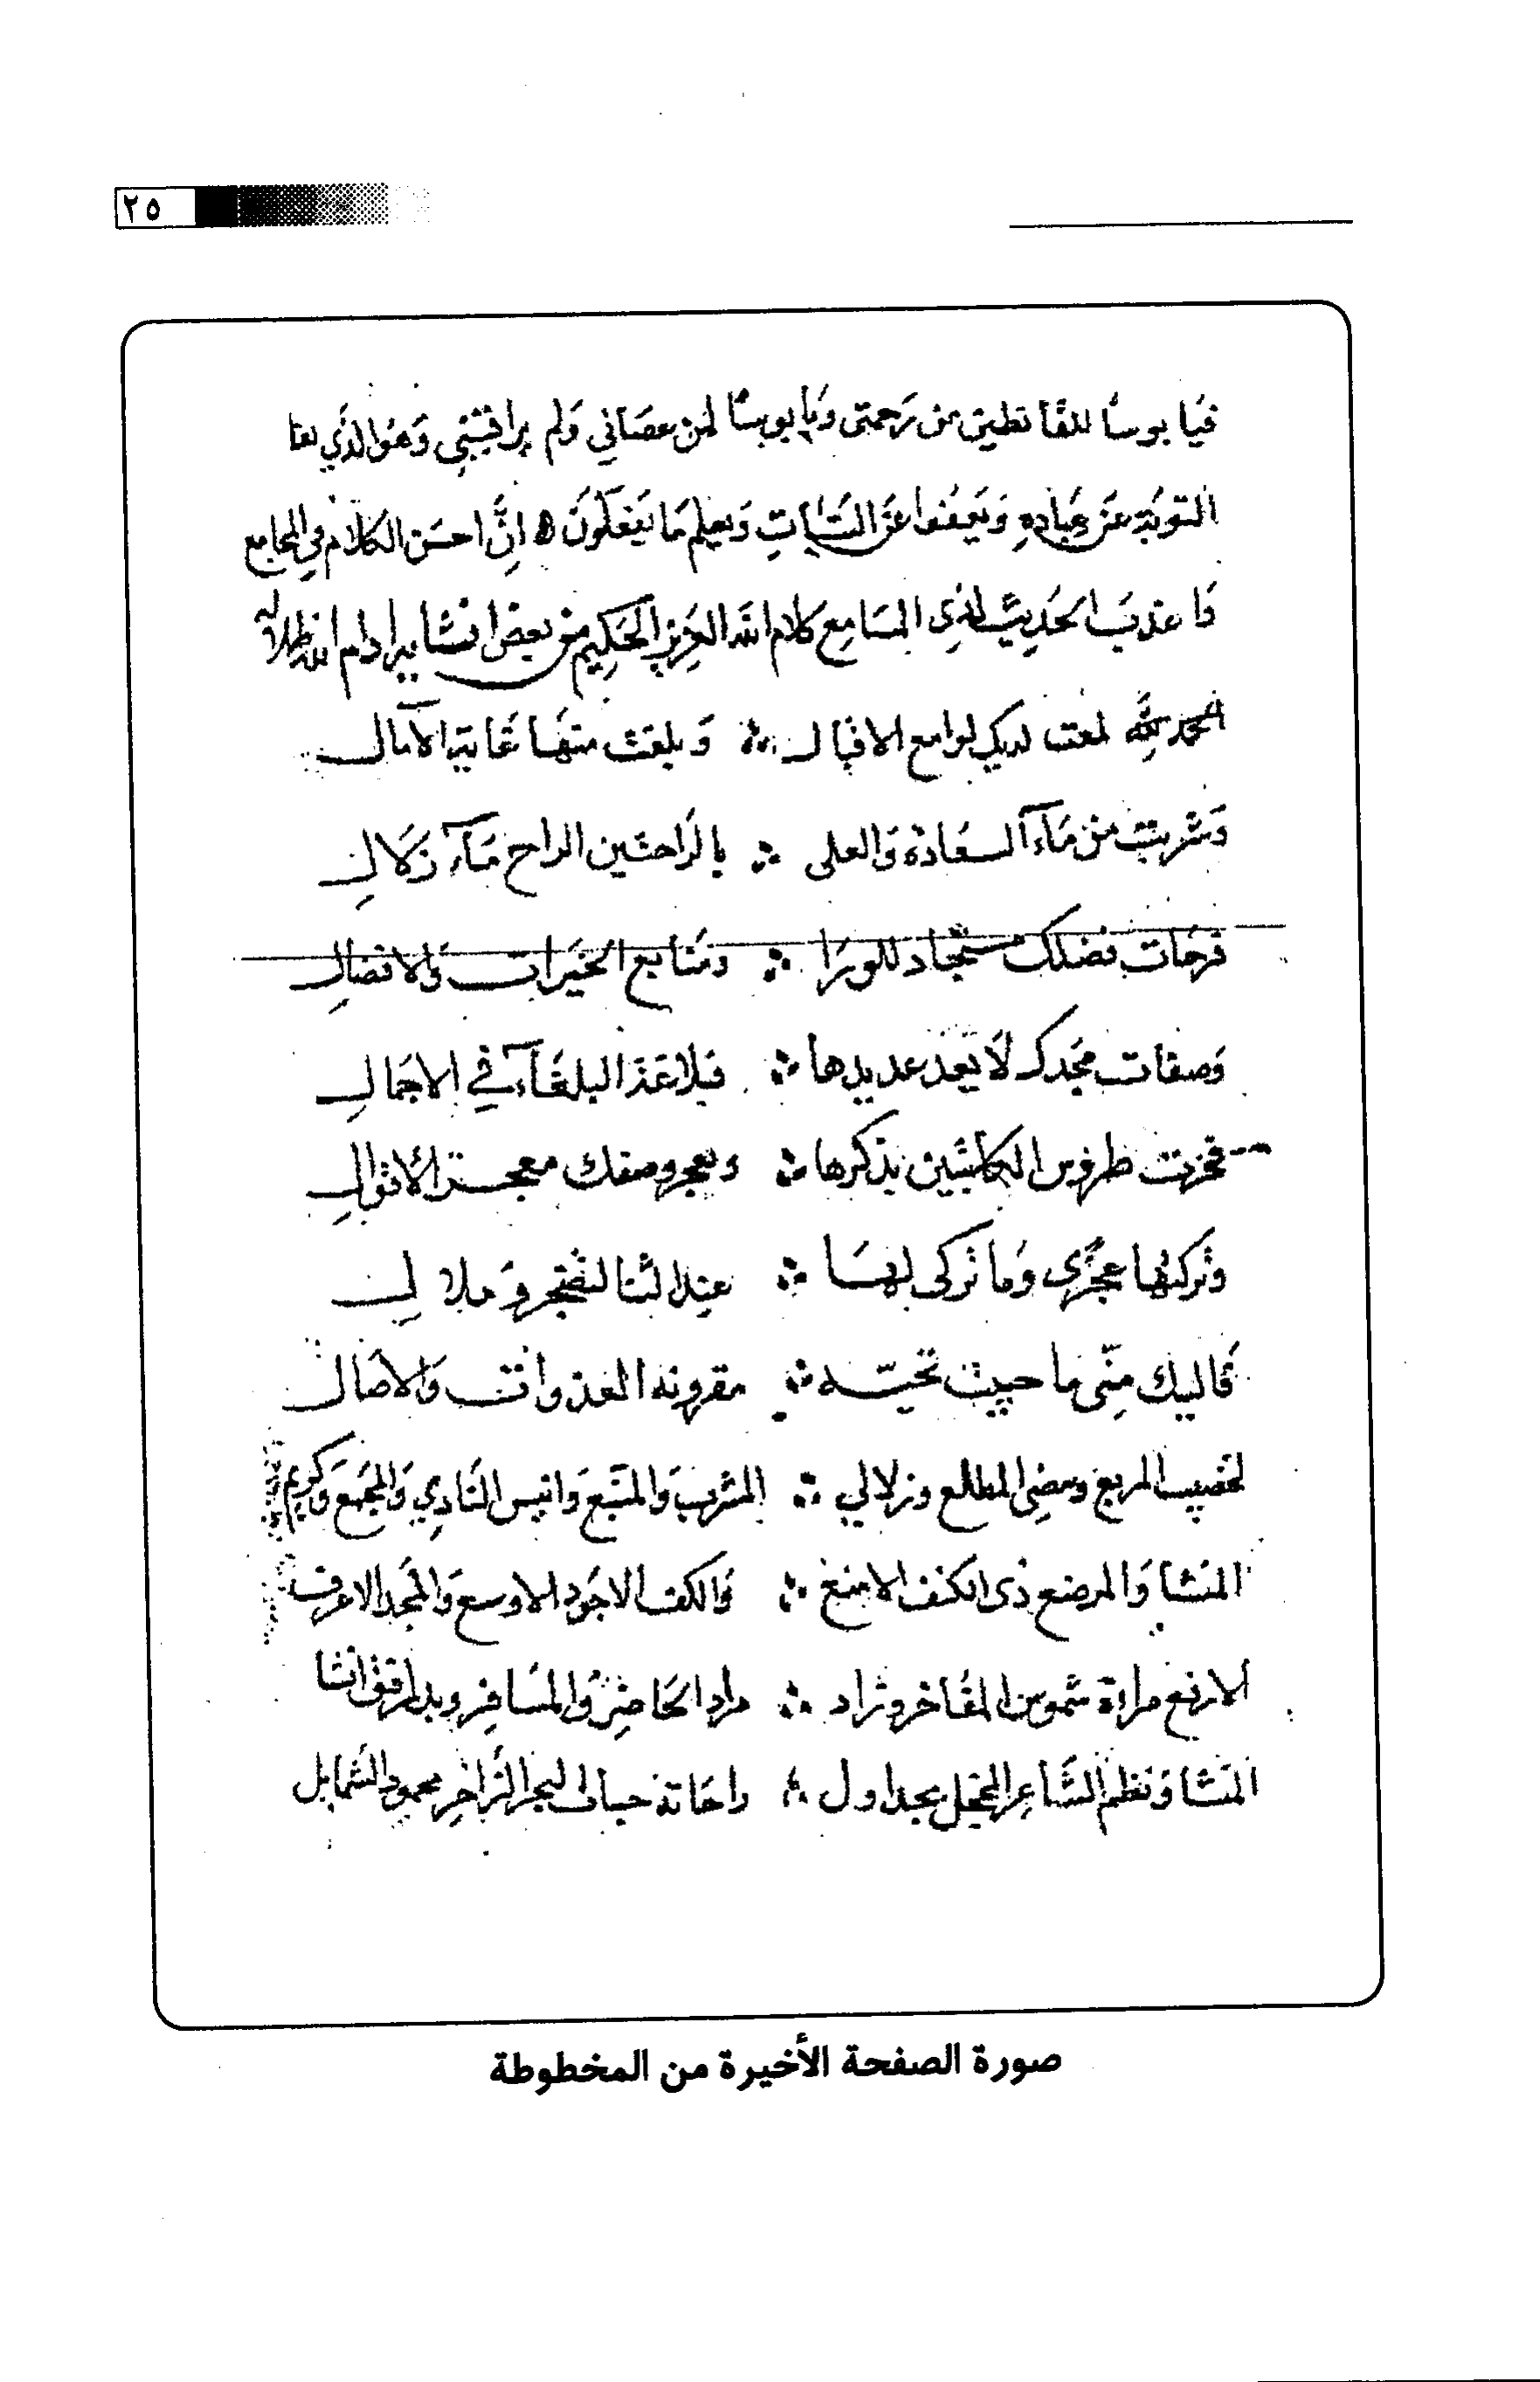 ٢٥
فيا بوسا للقانطين من رحمتي ويا بوسا لمن عصاني ولم يراقبني وهو الذي يقبل
التوبة عن عباده ويعفوا عن السيات ويعلم ما يفعلون ه ان احسن الكلام في المجامع
واعذب الحديث لذي المسامع كلام الله العزيز الحكيم من بعض ادام الله
الحمد لله لمعت لديك لوامع الاقبال ∴ وبلغت منها غاية الآمال
وشربت من مآء السعادة والعلى ∴ بالراحتين الراح مآء زلال
فضلك للورا ∴ الخيرات والافضال
وصفات مجدك لا يعد عديدها ∴ البلغآء في الاجمال
طروس الكاتبين بذكرها ∴ وصفك الاقوال
وتركتها عجزي وما تركي لها ∴ وملال
فاليك مني ما حييت تحيه ∴ مقرونه الغدوات والاصال
المربع المطلع وزلالي ∴ المشرب والمنبع وانيس النادي والمجمع وكريم
المنشا والمرضع ذى الكنف الامنع ∴ والكف الاجود الاوسع والمجد
الارفع المفاخر ∴ الحاضر والمسافر
المنشا ونظم الشاعر المخجل بجداول ∴ راحاته البحر الزاخر محمود الشمايل
صورة الصفحة الأخيرة من المخطوطة